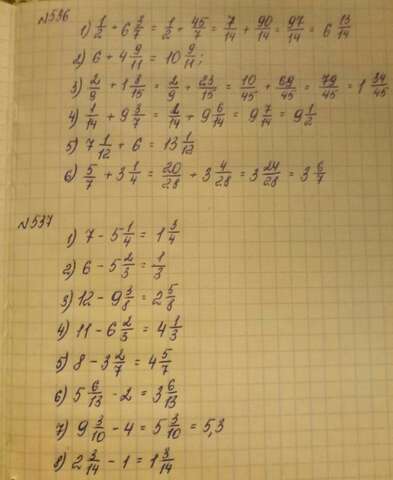 №536
1) 1/2 + 6 3/7 = 1/2 + 45/7 = 7/14 + 90/14 = 97/14 = 6 13/14
2) 6 + 4 9/11 = 10 9/11;
3) 2/9 + 1 8/15 = 2/9 + 23/15 = 10/45 + 69/45 = 79/45 = 1 34/45
4) 1/14 + 9 3/7 = 1/14 + 9 6/14 = 9 7/14 = 9 1/2
5) 7 1/12 + 6 = 13 1/12
6) 5/7 + 3 1/4 = 20/28 + 3 4/28 = 3 24/28 = 3 6/7
№537
1) 7 - 5 1/4 = 1 3/4
2) 6 - 5 2/3 = 1/3
3) 12 - 9 3/8 = 2 5/8
4) 11 - 6 2/3 = 4 1/3
5) 8 - 3 2/7 = 4 5/7
6) 5 6/13 - 2 = 3 6/13
7) 9 3/10 - 4 = 5 3/10 = 5,3
8) 2 3/14 - 1 = 1 3/14